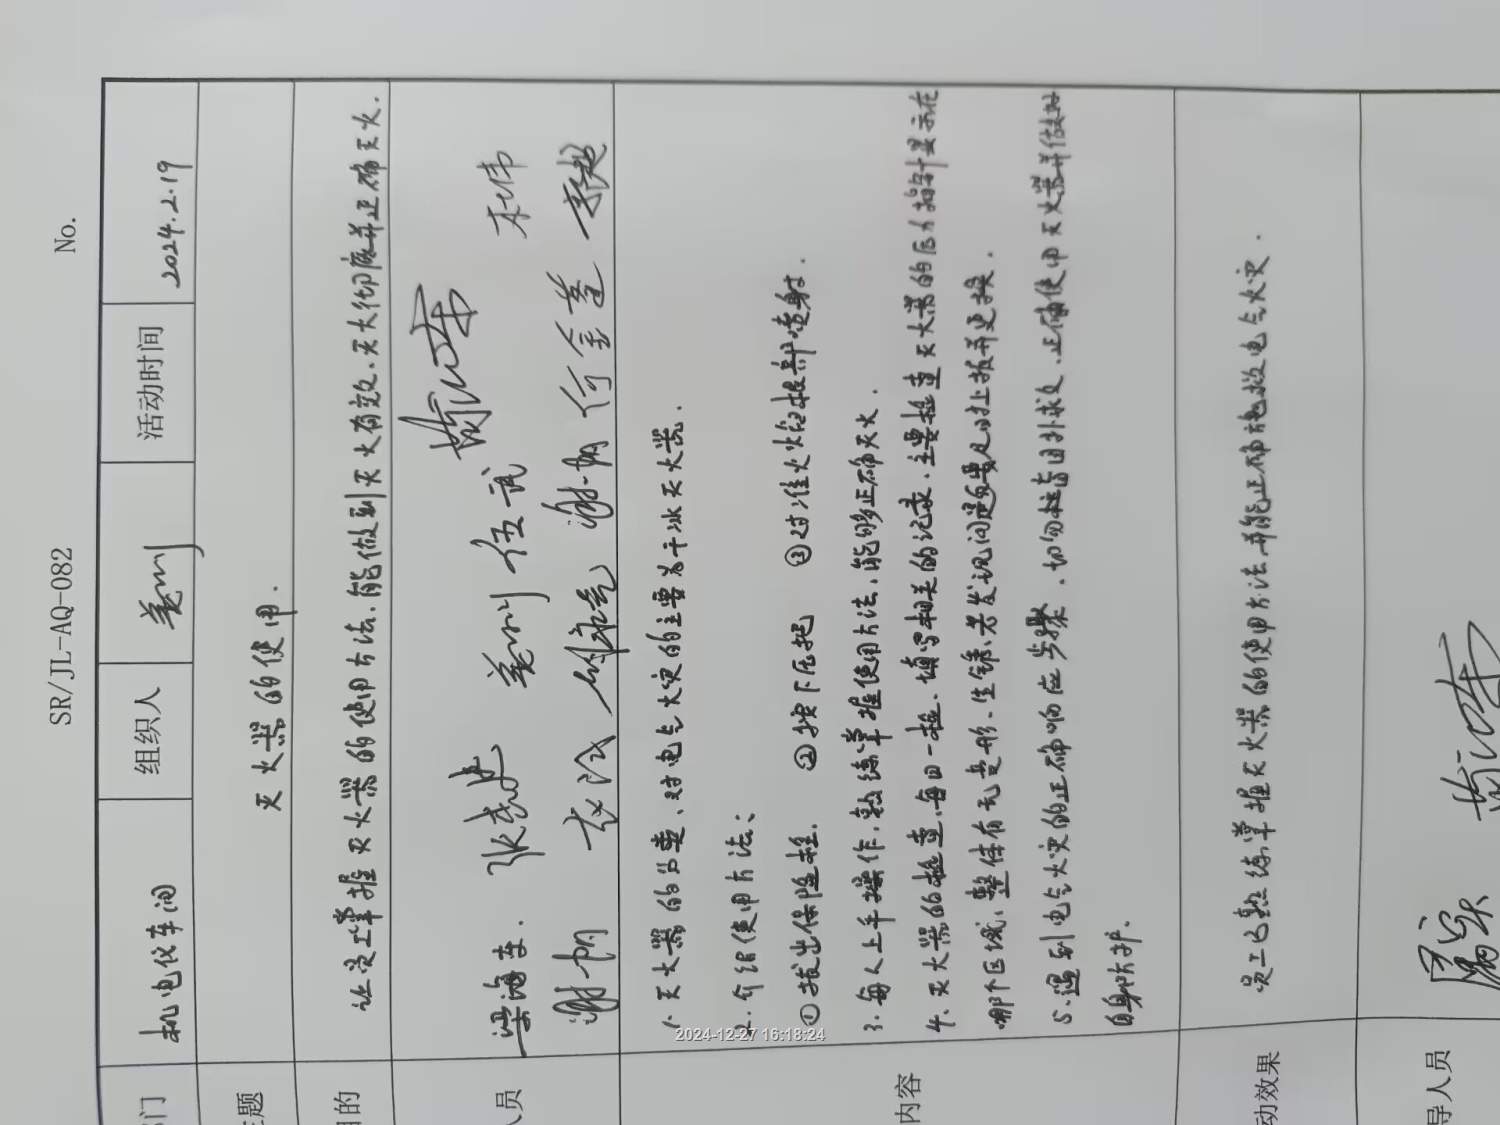 SR/JL-AQ-082 No.
部门 机电仪车间 组织人 姜川 活动时间 2024.2.19
主题 灭火器的使用.
目的 让员工掌握灭火器的使用方法,能做到灭火有效.灭火彻底并正确灭火.
人员 梁海车. 姜川 伍武
谢帅 谢帅
内容
1. 灭火器的分类、对电气火灾的主要为干冰灭火器.
2. 介绍使用方法:
①拔出保险栓. ②按下压把 ③对准火焰根部喷射.
3. 每人上手操作,熟练掌握使用方法,能够正确灭火.
4. 灭火器的检查,每日一检、填写相关的记录.主要检查灭火器的压力指针显示在
哪个区域、整体有无变形、生锈、若发现问题要及时上报并更换.
5. 遇到电气火灾的正确响应步骤.切勿盲目扑救、正确使用灭火器并做好
自身防护.
动效果 员工已熟练掌握灭火器的使用方法,并能正确施救电气火灾.
导人员
2024-12-27 16:18:24